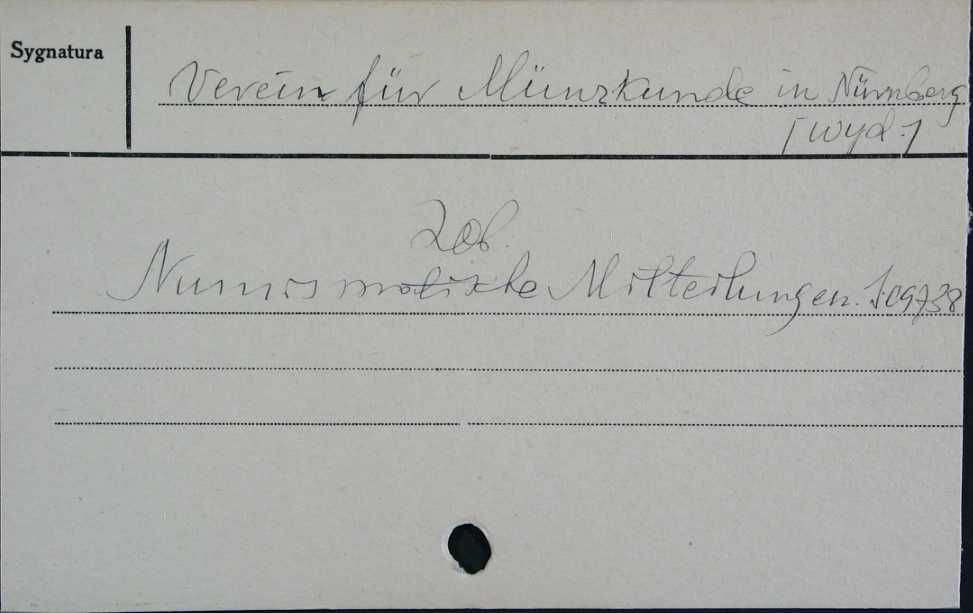 Sygnatura
Verein für Münzkunde in Nürnberg
[wyd.]
Zob.
Numismatische Mitteilungen. 109738